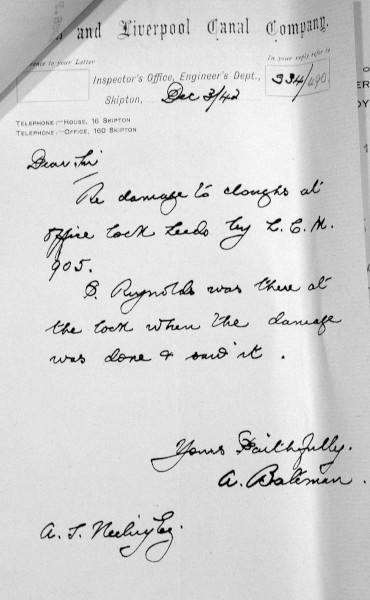 and Liverpool Canal Company.
ence to your Letter
In your reply refer to
Inspector's Office, Engineer's Dept.,
334/490.
Skipton, Dec 3/42
TELEPHONE:—HOUSE, 16 SKIPTON
TELEPHONE:—OFFICE, 160 SKIPTON
Dear Sir
Re damage to cloughs at
office lock Leeds by L. C. M.
905.
S. Reynolds was there at
the lock when the damage
was done & said it.
Yours Faithfully.
A. Bateman.
A. S.